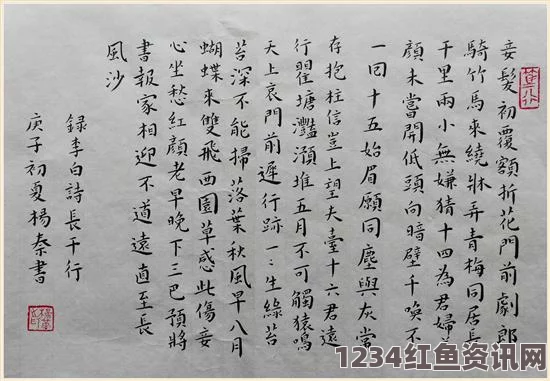 妾髮初覆額折花門前劇郎
騎竹馬來繞牀弄青梅同居長
干里兩小無嫌猜十四為君婦
顏未嘗開低頭向暗壁千喚不
一回十五始眉願同塵與灰常
存抱柱信豈上望夫臺十六君遠
行瞿塘灩澦堆五月不可觸猿鳴
天上哀門前遲行跡一:生綠苔
苔深不能掃落葉秋風早八月
蝴蝶來雙飛西園草感此傷妾
心坐愁紅顏老早晚下三巴預將
書報家相迎不道遠直至長
風沙
錄李白詩長干行
庚子初夏楊秦書
1234红鱼资讯网
WWW.ROFISH.COM